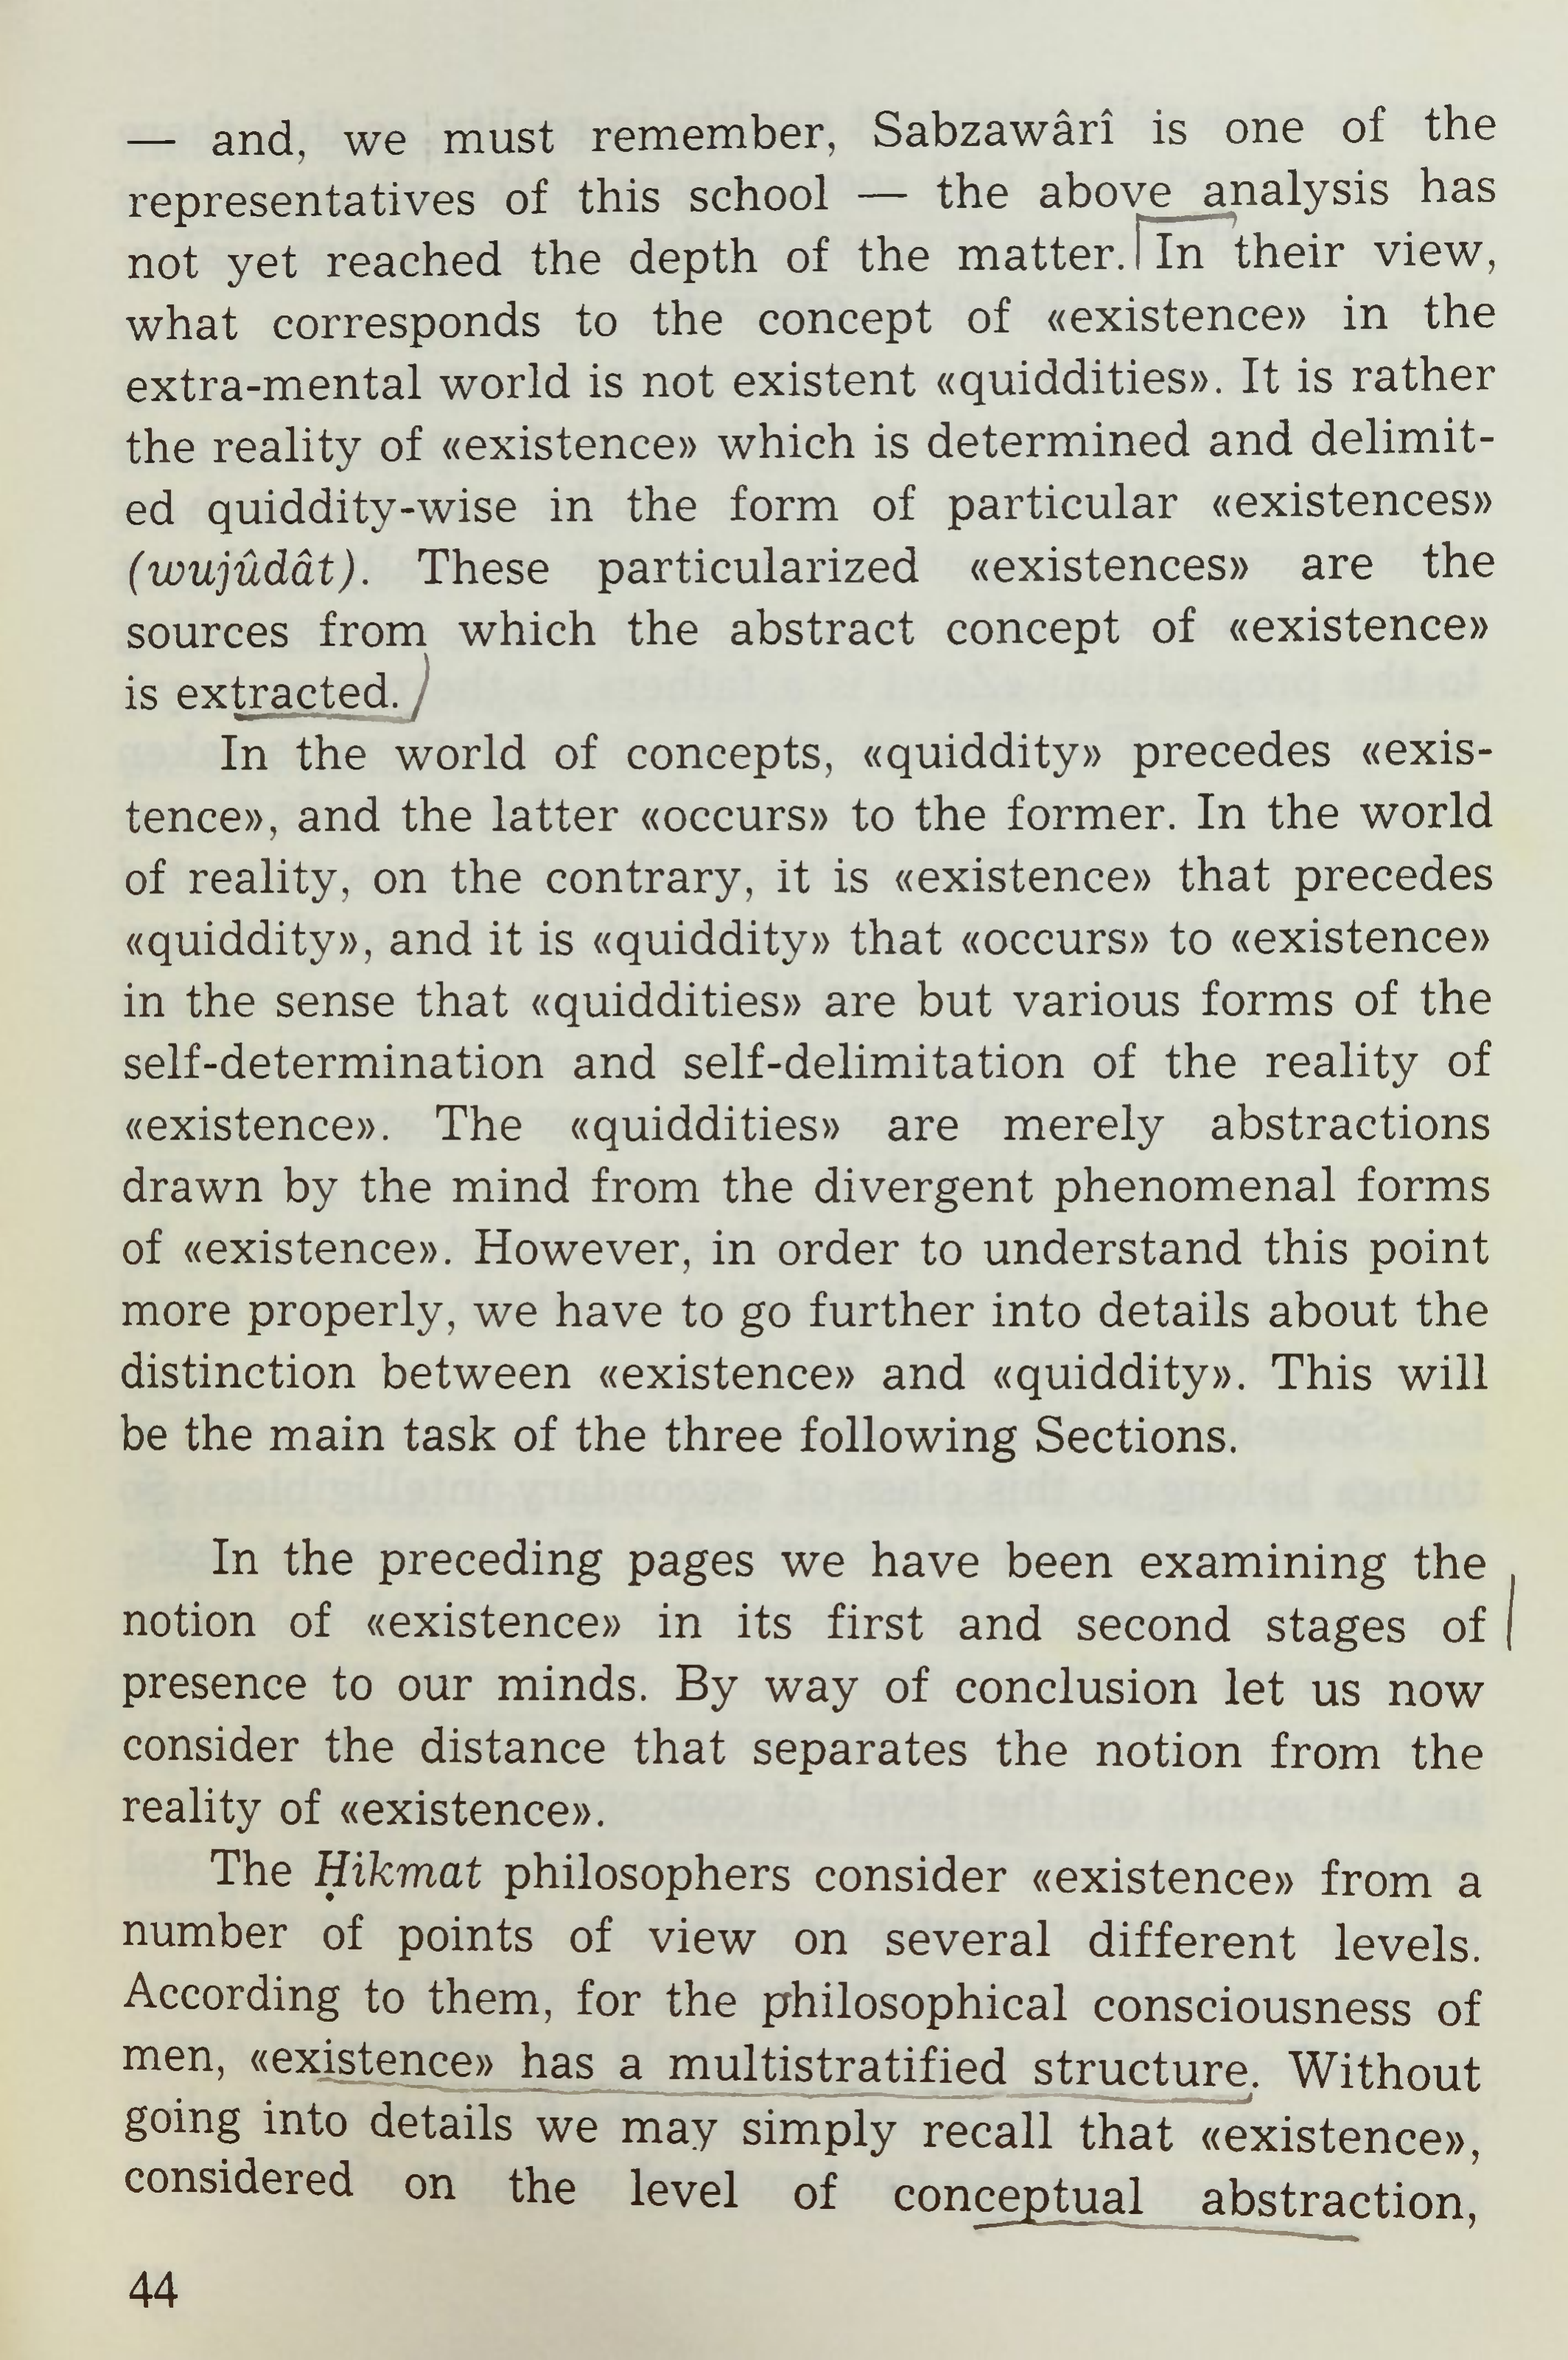 — and, we must remember, Sabzawârî is one of the
representatives of this school — the above analysis has
not yet reached the depth of the matter. In their view,
what corresponds to the concept of «existence» in the
extra-mental world is not existent «quiddities». It is rather
the reality of «existence» which is determined and delimit-
ed quiddity-wise in the form of particular «existences»
(wujûdât). These particularized «existences» are the
sources from which the abstract concept of «existence»
is extracted.
In the world of concepts, «quiddity» precedes «exis-
tence», and the latter «occurs» to the former. In the world
of reality, on the contrary, it is «existence» that precedes
«quiddity», and it is «quiddity» that «occurs» to «existence»
in the sense that «quiddities» are but various forms of the
self-determination and self-delimitation of the reality of
«existence». The «quiddities» are merely abstractions
drawn by the mind from the divergent phenomenal forms
of «existence». However, in order to understand this point
more properly, we have to go further into details about the
distinction between «existence» and «quiddity». This will
be the main task of the three following Sections.
In the preceding pages we have been examining the
notion of «existence» in its first and second stages of
presence to our minds. By way of conclusion let us now
consider the distance that separates the notion from the
reality of «existence».
The Ḥikmat philosophers consider «existence» from a
number of points of view on several different levels.
According to them, for the philosophical consciousness of
men, «existence» has a multistratified structure. Without
going into details we may simply recall that «existence»,
considered on the level of conceptual abstraction,
44